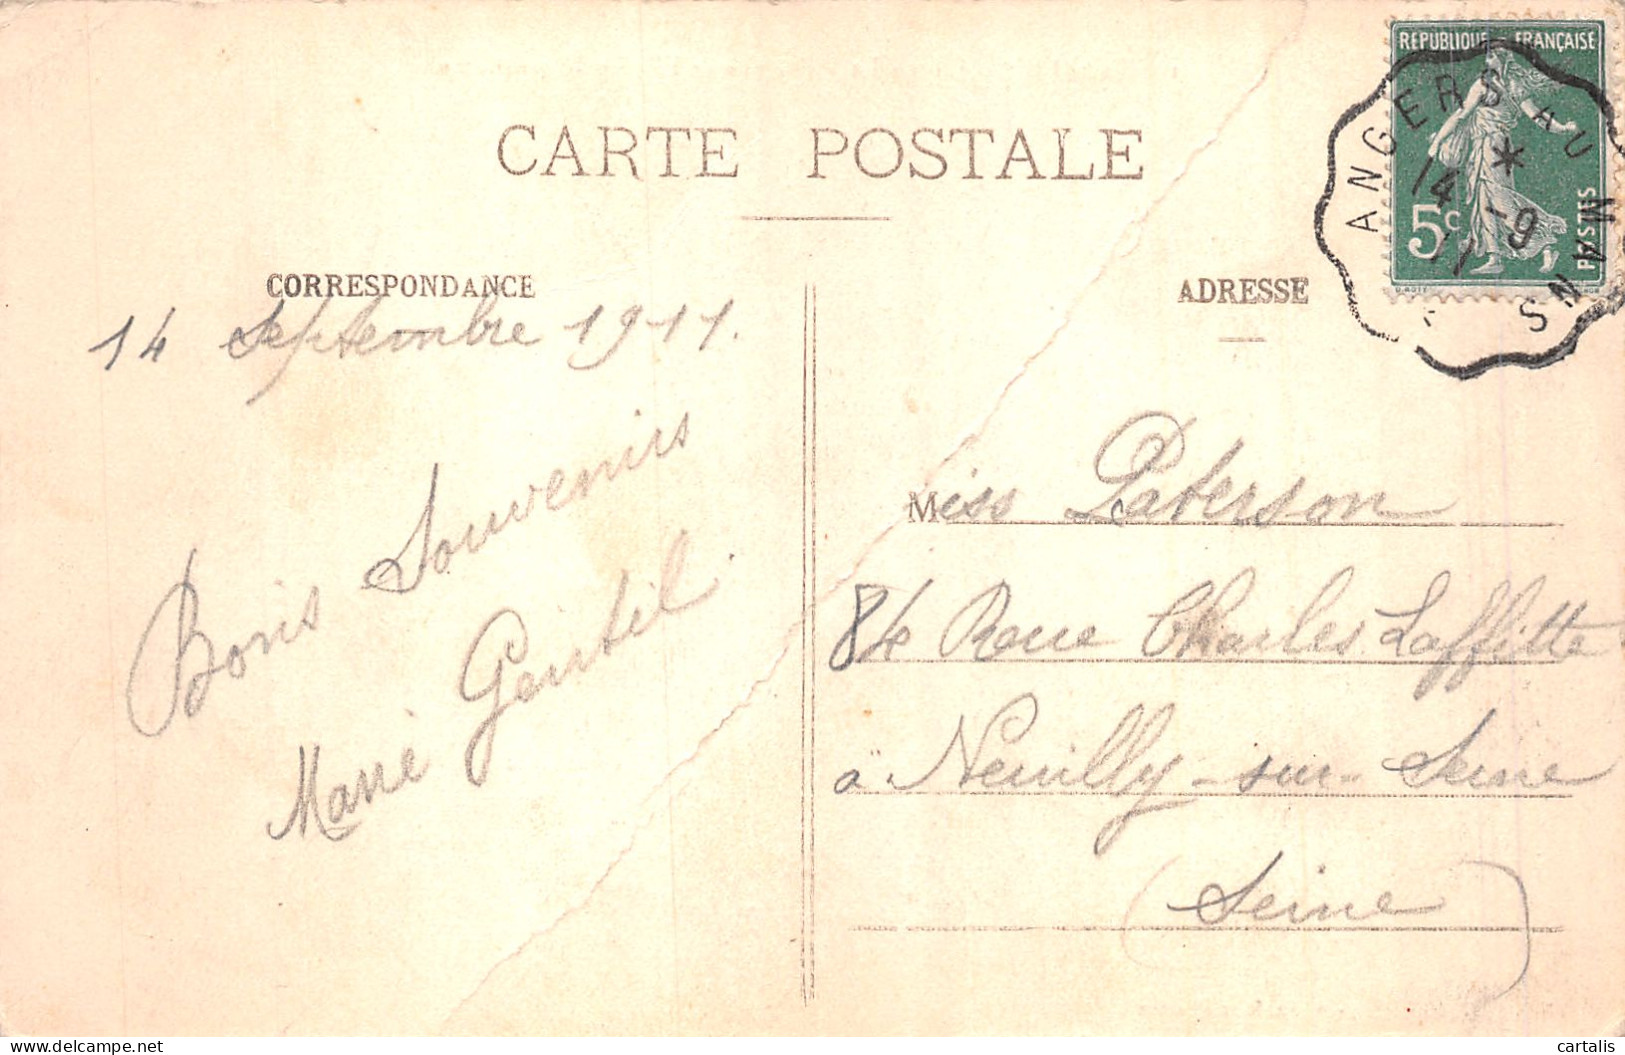 CARTE POSTALE
REPUBLIQUE FRANÇAISE
5c
POSTES
ANGERS AU MANS
*
14 -9
11
CORRESPONDANCE
14 Septembre 1911.
Bons Souvenirs
Marie Gentil.
ADRESSE
Miss Paterson
84 Rue Charles Laffitte
à Neuilly-sur-Seine
(Seine)
delcampe.net
cartalis